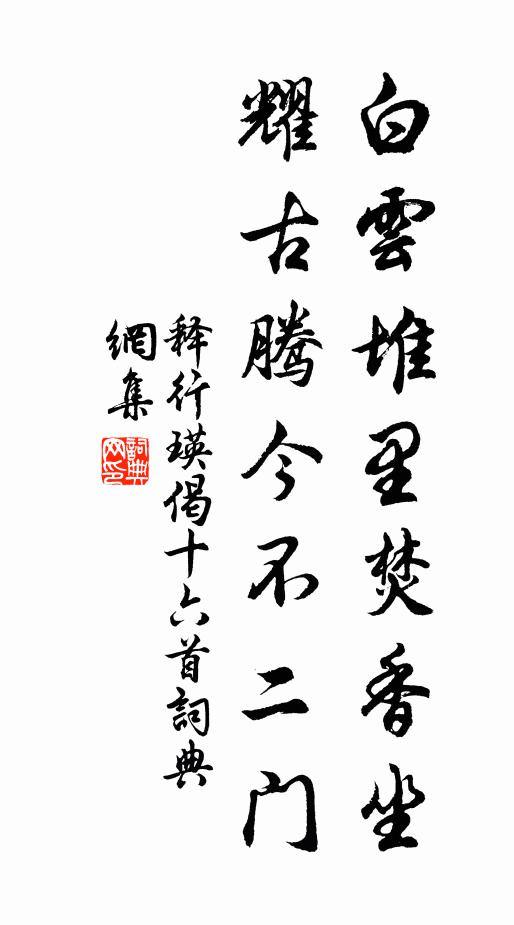 白雲堆里焚香坐
耀古腾今不二门
释行瑛偈十六首詞典
網集
詞典
网印